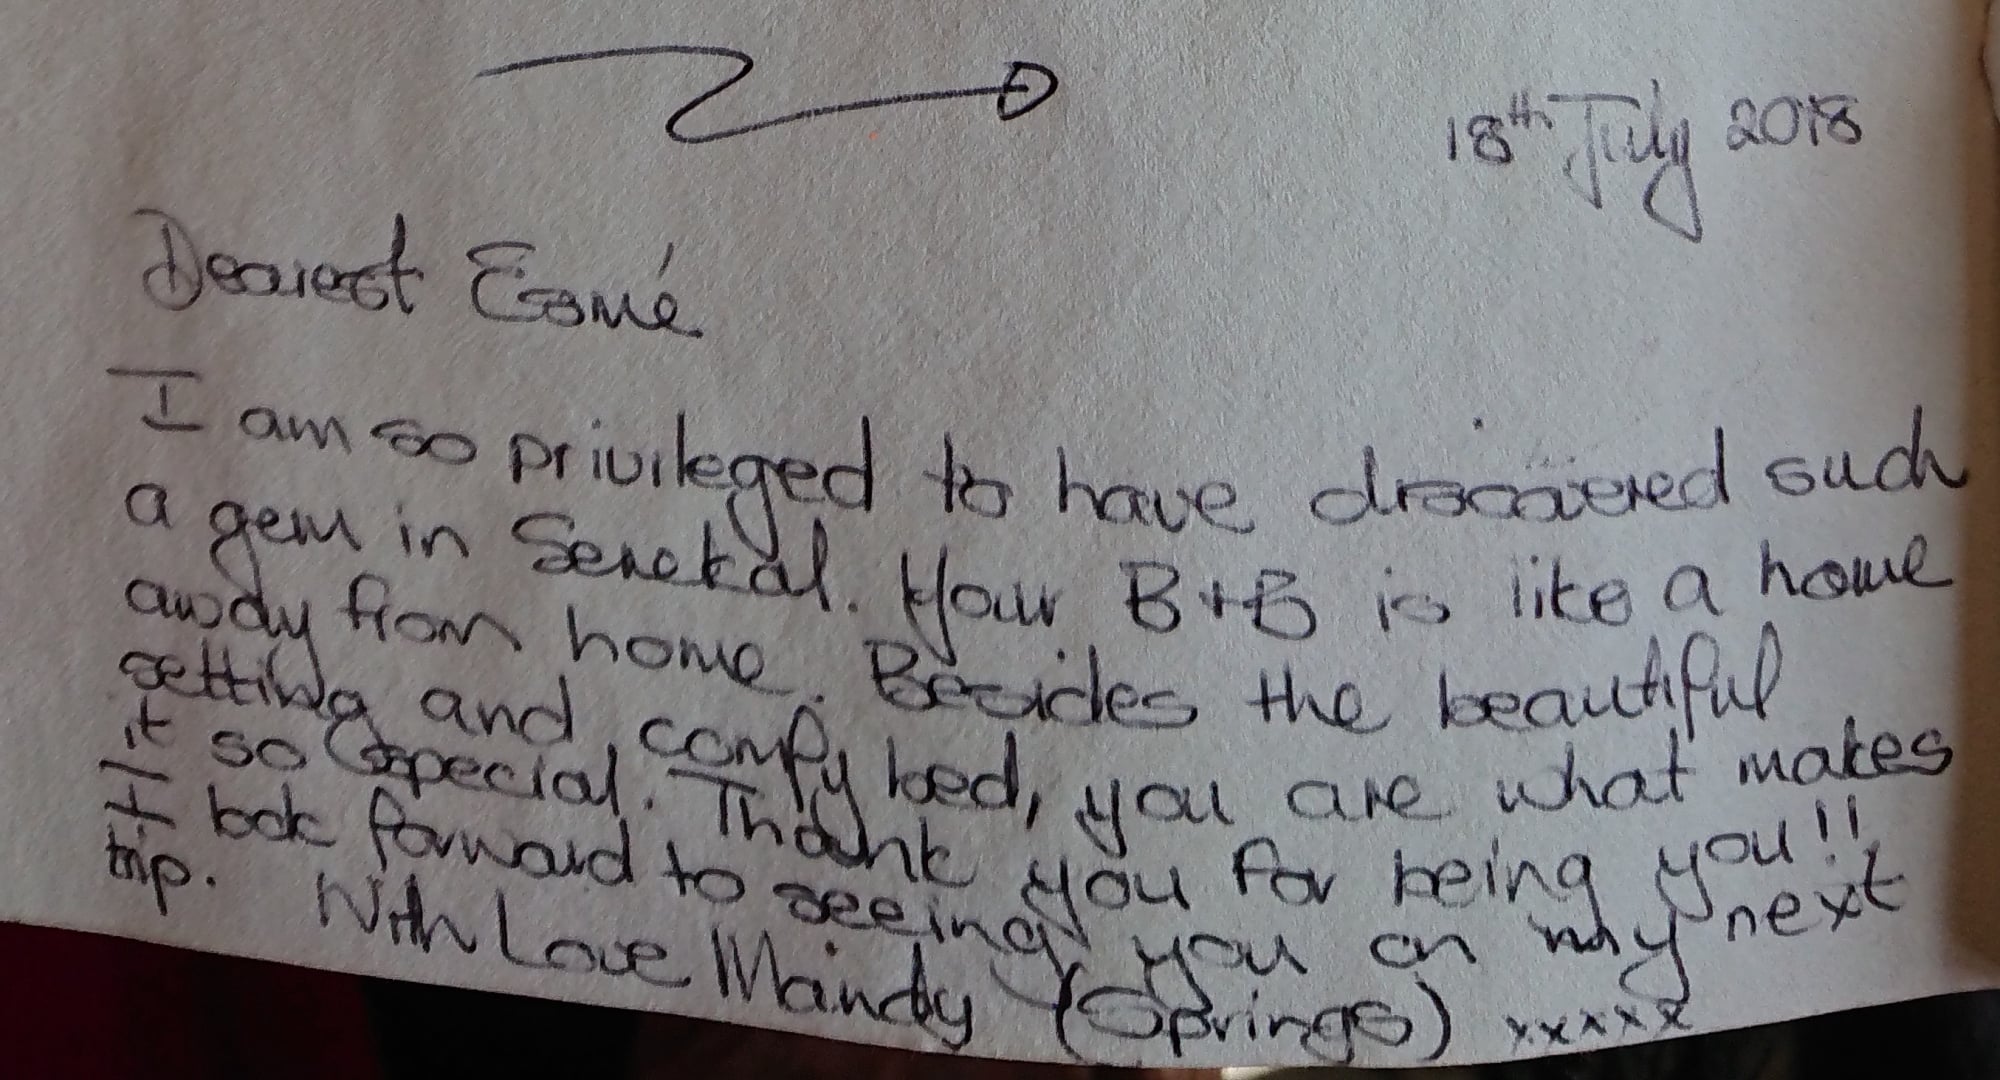 18th July 2018
Dearest Esmé
I am so privileged to have discovered such
a gem in Senekal. Your B+B is like a home
away from home. Besides the beautiful
setting and comfy bed, you are what makes
it so special. Thank you for being you!!
I look forward to seeing you on my next
trip. With Love Mandy (Springs) xxxxx